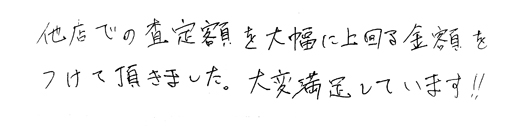 他店での査定額を大幅に上回る金額を
つけて頂きました。大変満足しています!!